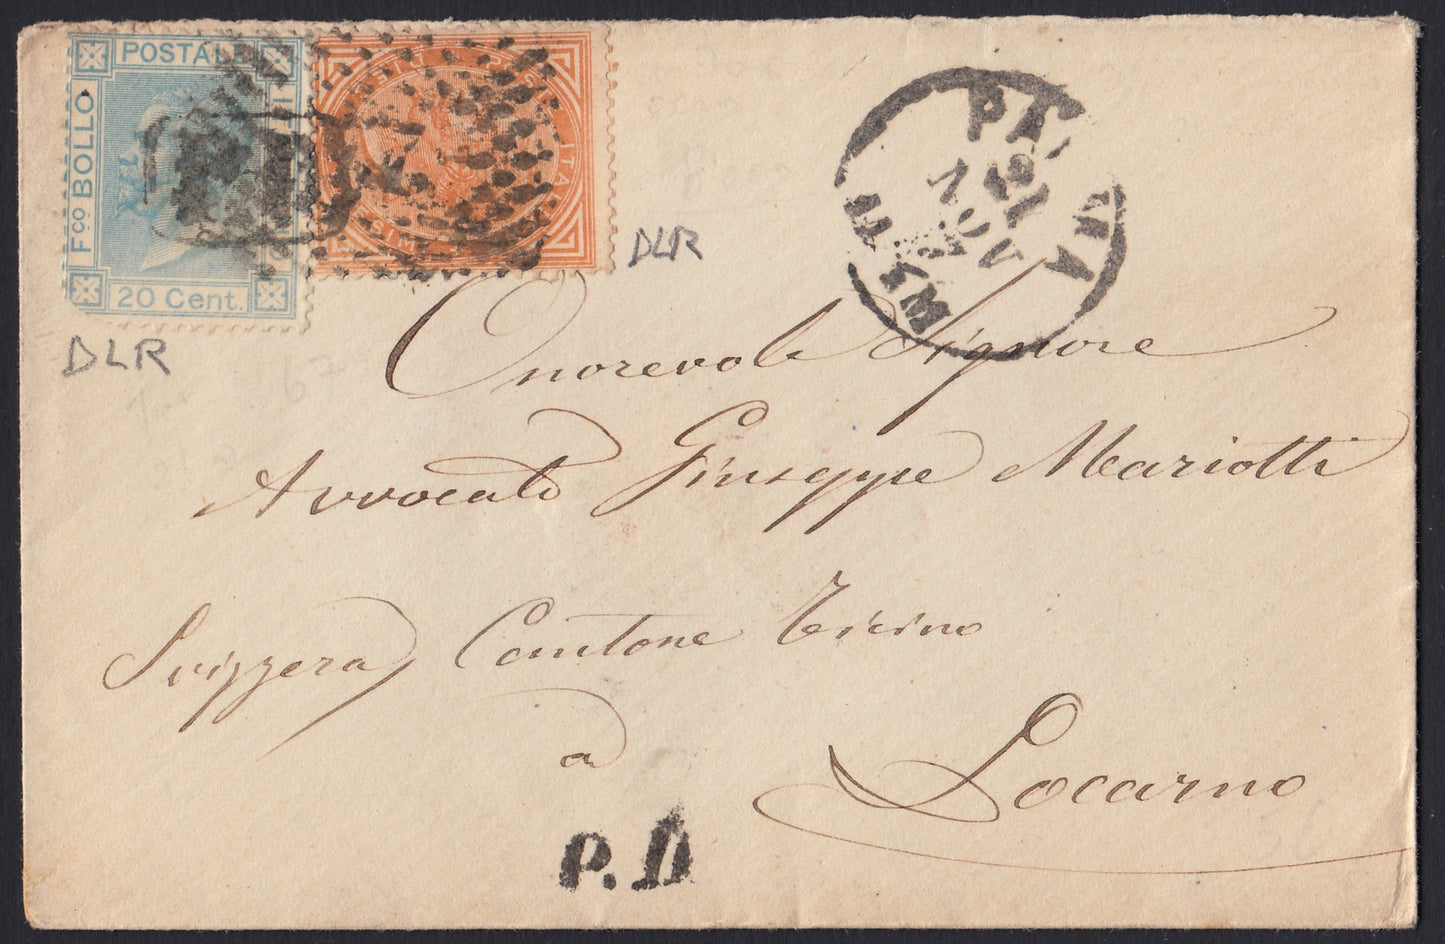 POSTALE
Fco BOLLO
20 Cent.
DLR
DLR
PARMA
NOV
Onorevole Signore
Avvocato Giuseppe Mariotti
Svizzera Cantone Ticino
a
Locarno
P.D